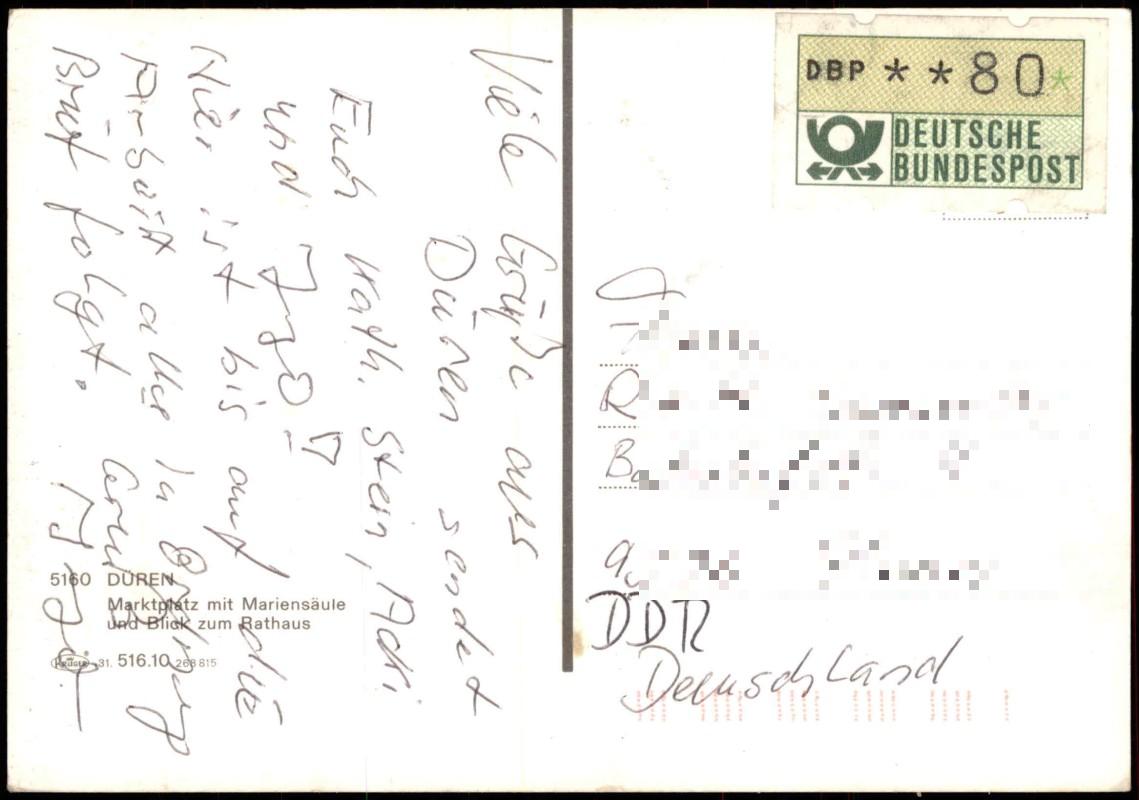 Viele Grüße aus
Düren sendet
Euch Kath. Stein,
und Ingo!
Hier ist bis auf die
Arbeit alles in Ordnung
Brief folgt. Gruß
Ingo
5160 DÜREN
Marktplatz mit Mariensäule
und Blick zum Rathaus
KRÜGER 31. 516.10 268815
DBP **80*
DEUTSCHE
BUNDESPOST
DDR
Deutschland